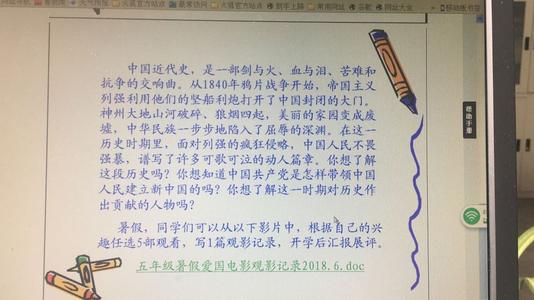 火狐官方站点
最常访问
火狐官方站点
新手上路
常用网址
谷歌
网址大全
移动版书签
中国近代史，是一部剑与火、血与泪、苦难和
抗争的交响曲。从1840年鸦片战争开始，帝国主义
列强利用他们的坚船利炮打开了中国封闭的大门。
神州大地山河破碎、狼烟四起，美丽的家园变成废
墟，中华民族一步步地陷入了屈辱的深渊。在这一
历史时期里，面对列强的疯狂侵略，中国人民不畏
强暴，谱写了许多可歌可泣的动人篇章。你想了解
这段历史吗？你想知道中国共产党是怎样带领中国
人民建立新中国的吗？你想了解这一时期对历史作
出贡献的人物吗？
暑假，同学们可以从以下影片中，根据自己的兴
趣任选5部观看，写1篇观影记录，开学后汇报展评。
五年级暑假爱国电影观影记录2018.6.doc
帮助手册